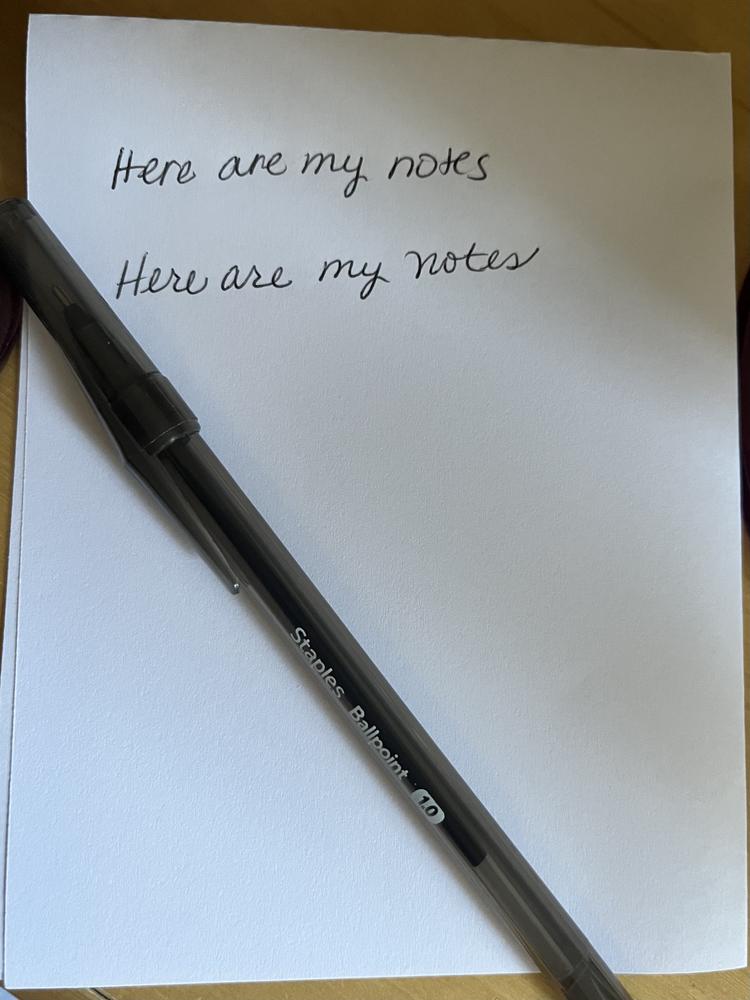 Here are my notes
Here are my notes
Staples Ballpoint 1.0